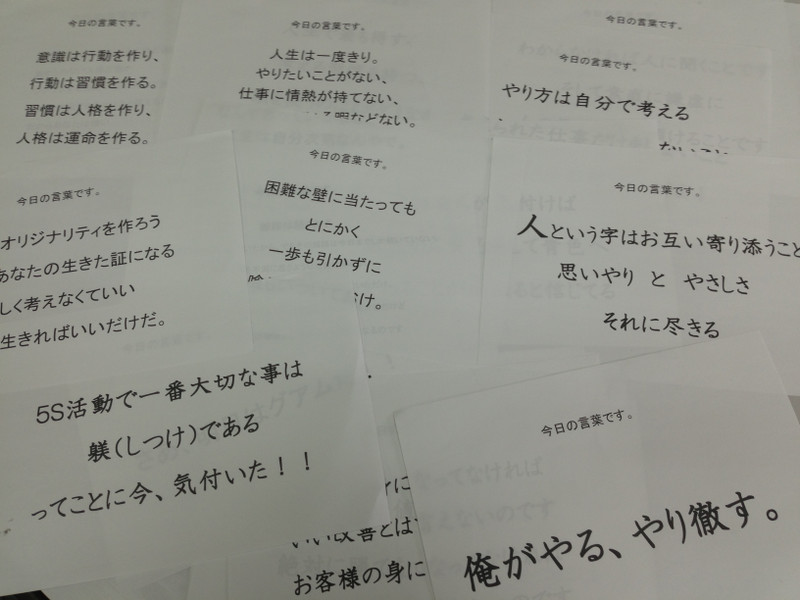 今日の言葉です。
意識は行動を作り、
行動は習慣を作る。
習慣は人格を作り、
人格は運命を作る。
今日の言葉です。
人生は一度きり。
やりたいことがない、
仕事に情熱が持てない、
などない。
今日の言葉です。
今日の言葉です。
やり方は自分で考える
今日の言葉です。
オリジナリティを作ろう
あなたの生きた証になる
しく考えなくていい
生きればいいだけだ。
今日の言葉です。
困難な壁に当たっても
とにかく
一歩も引かずに
け。
今日の言葉です。
人という字はお互い寄り添うこと
思いやり と やさしさ
それに尽きる
5S活動で一番大切な事は
躾(しつけ)である
ってことに今、気付いた！！
に
いい改善とは
お客様の身に
今日の言葉です。
俺がやる、やり徹す。